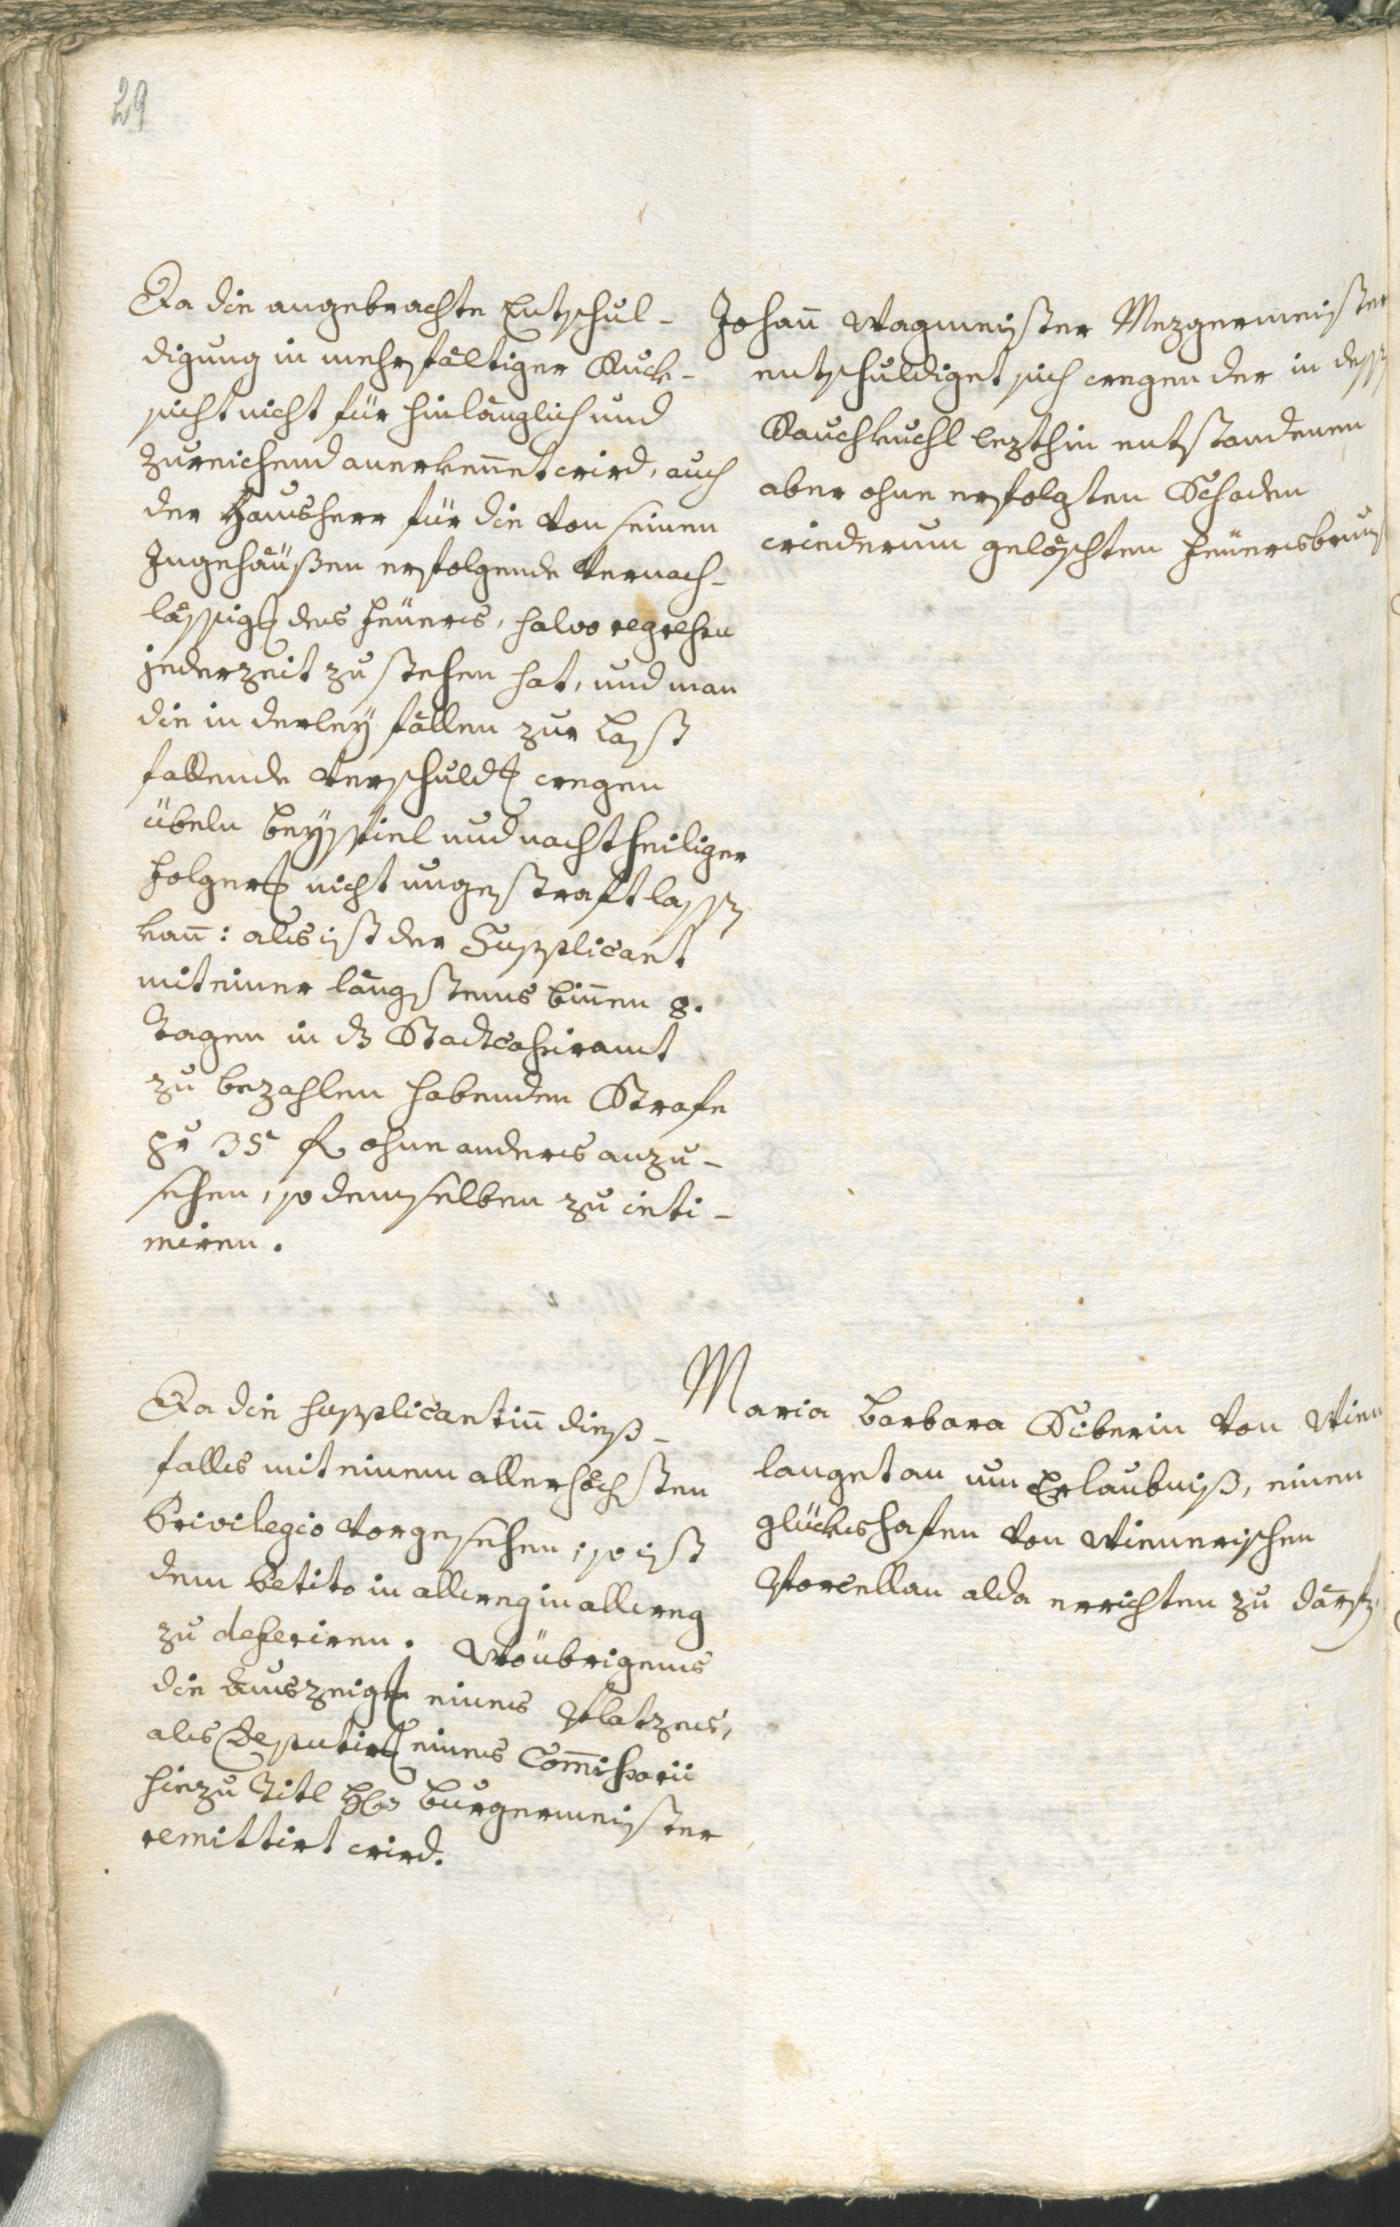 29
Da die angebrachte Entschul-
digung in mehrfältiger Ruck-
sicht nicht für hinlänglich und
zureichend anerkennet wird, auch
der Hausherr für die von seinen
Ingehäußen erfolgende Vernach-
läßigg des Feuers, salvo regressu
jederzeit zu stehen hat, und man
die in derley fällen zur Last
fallende Verschuldg wegen
übeln Beyspiel und nachtheiliger
Folgerg nicht ungestraft lassen
kann: als ist der Supplicant
mit einer längstens binnen 8.
Tagen in das Stadtcassieramt
zu bezahlen habenden Strafe
pr 35 fl ohne anders anzu-
sehen, so demselben zu inti-
miren.
Johann Wagmeister Mezgermeister
entschuldiget sich wegen der in dessen
Rauchkuchl lezthin entstandenen
aber ohne erfolgten Schaden
wiederum gelöschten Feuersbrunst
Da die Supplicantin dieß-
falls mit einem allerhöchsten
Privilegio vorgesehen; so ist
dem Petito in allweg
zu deferiren. Wo übrigens
die Auszeigg eines Platzes,
als Deputirg eines Commissarii
hinzu Titl Hrn Burgermeister
remittirt wird.
Maria Barbara Siberin von Wien
langet an um Erlaubniß, einen
Glückshafen von Wienerischen
Porcellan alda errichten zu därfen.